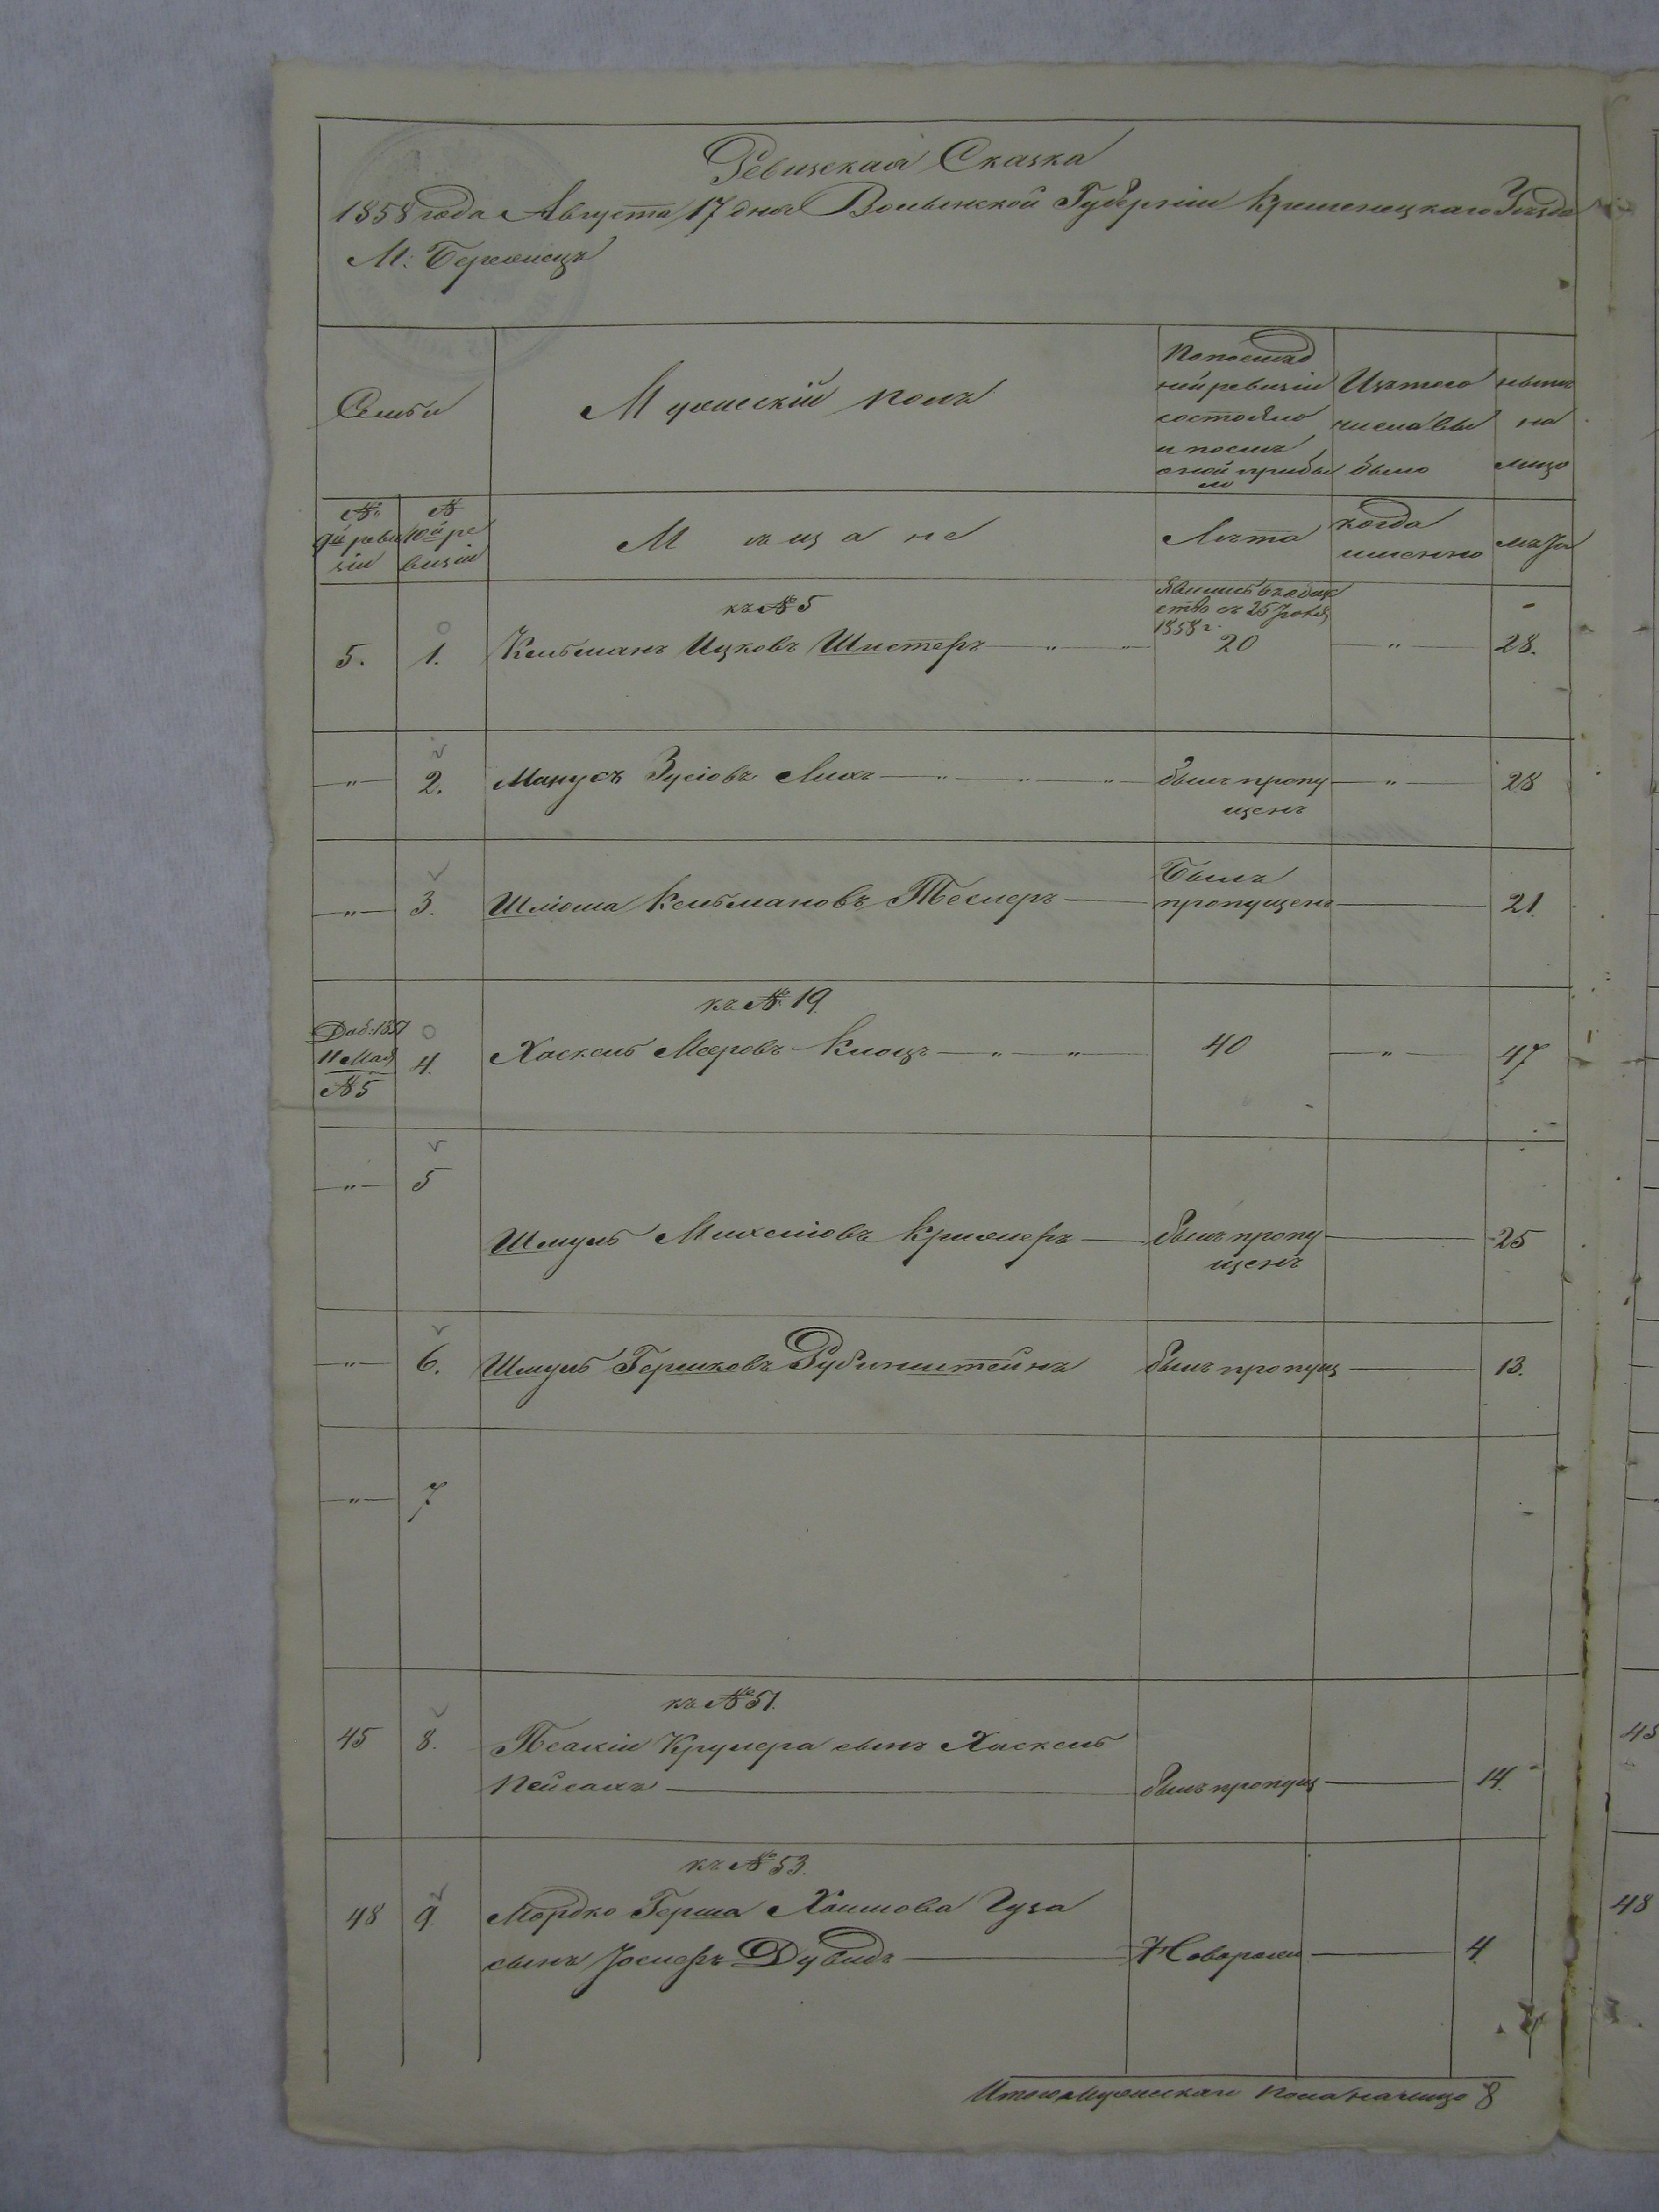 Ревизская Сказка
1858 года Августа 17 дня Волынской Губерніи Кременецкаго Уѣзда
М: Бережецъ
Семьи
Мужескій полъ
По послѣд
ней ревизіи
состояло
и послѣ
оной прибы
ло
Изъ того
числа вы
было
нынѣ
на
лицо
№
9й реви
зіи
№
10й ре
визіи
М ѣ щ а н е
Лѣта
когда
именно
лѣта
къ № 5
1858 г.
5. 1. Кельманъ Ицковъ Шистеръ — " — " — 20 — " — 28.
— " — 2. Манусъ Зусіовъ Лихъ — " — " — былъ пропу — " — 28
щенъ
— " — 3. Шліома Кельмановъ Теслеръ — Былъ
пропущенъ — 21.
къ № 19.
11 Мая
№ 5
4. Хаскель Мееровъ Клоцъ — " — " — 40 — " — 47
— " — 5
Шмуль Михелiовъ Крижеръ — былъ пропу — 25
щенъ
— " — 6. Шмуль Гершковъ Рубинштейнъ былъ пропущ — 13.
— " — 7
къ № 51.
45 8. Крулера сынъ Хаскель
Пейсахъ — былъ пропущ — 14.
къ № 53.
48 9. Мордко Герша Хаимова Гуза
сынъ Іосифъ Дувидъ — Новорожд — 4.
Итого мужескаго пола на лицо 8
45
48